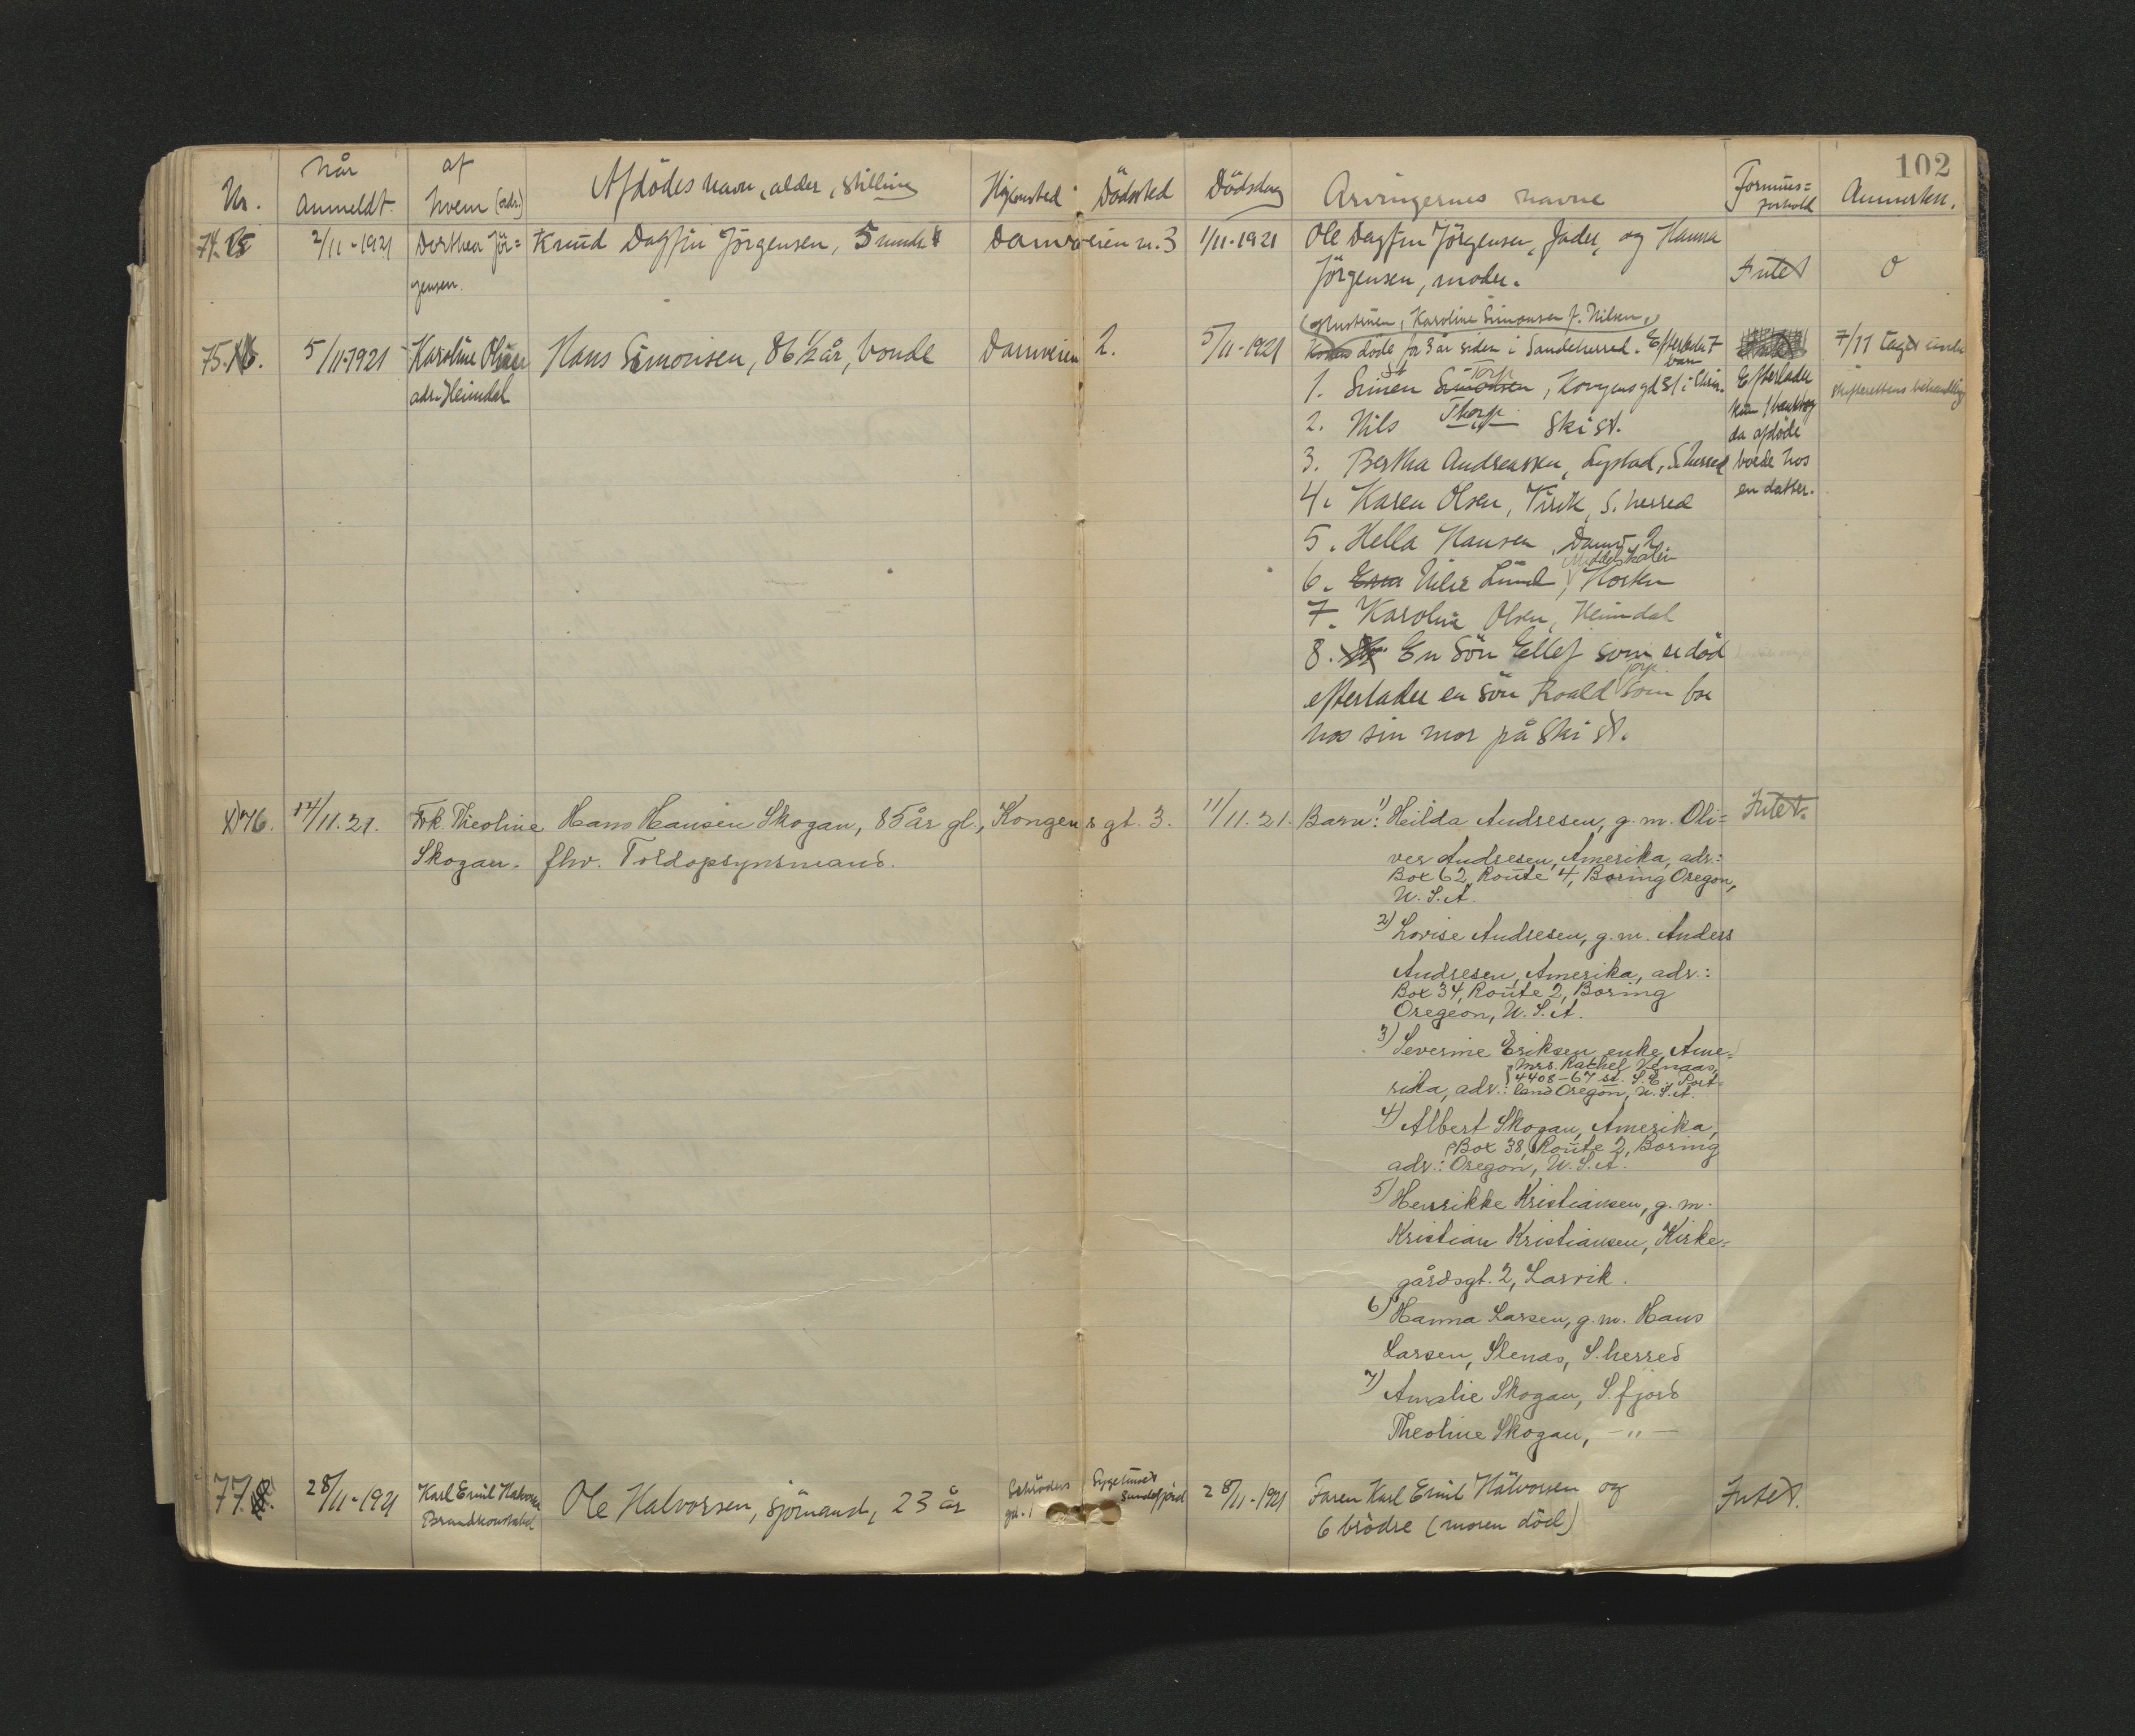 102
Nr.
Når anmeldt.
af hvem (adr.)
Afdödes navn, alder, stilling
Hjemsted
Dödssted
Dödsdag
Arvingernes navne
Formues=
forhold
Anmerkn.
74.
2/11-1921
Dorthea Jör=
gensen.
Knud Dagfin Jörgensen, 5 mndr
Damveien n. 3
1/11-1921
Ole Dagfin Jörgensen, fader, og Hanna
Jörgensen, moder.
Intet
0
75.
5/11-1921
Karoline Olsen
adr. Heimdal
Hans Simonsen, 86 1/2 år, bonde
Damveien 2.
5/11-1921
(Hustruen, Karoline Simonsen f. Nilsen,)
döde for 3 år siden i Sandeherred. Efterlader 7
barn
1. Simen Simonsen Torp, Kongensgd 81 i Chria.
2. Nils Thorp Ski st.
3. Bertha Andreassen, Lystad, S. herred
4. Karen Olsen, Virik, S. herred
5. Hella Hansen, Damv 2
6. Nilse Lund, Horten
7. Karoline Olsen, Heimdal
8. En sön Ellef som er död
efterlader en sön Roald Torp som bor
hos sin mor på Ski st.
Efterlader
kun
da afdöde
boede hos
en datter.
7/11 taget under
skifterettens behandling
x) 76.
14/11.21.
Frk. Theoline
Skogan.
Hans Hansen Skogan, 85 år gl.,
fhv. Toldopsynsmand.
Kongens gt. 3.
11/11.21.
Barn: 1) Hilda Andresen, g. m. Oli=
ver Andresen, Amerika, adr.:
Box 62, Route 4, Boring Oregon,
U. S. A.
2) Lovise Andresen, g. m. Anders
Andresen, Amerika, adr.:
Box 34, Route 2, Boring
Oregeon, U. S. A.
3) Severine Eriksen, enke, Ame=
Mrs. Rathel Venaas,
4408-67 st. S. E., Port=
rika, adr.: land Oregon, U. S. A.
4) Albert Skogan, Amerika,
Box 38, Route 2, Boring
adr.: Oregon, U. S. A.
5) Henrikke Kristiansen, g. m.
Kristian Kristiansen, Kirke=
gårdsgt. 2, Larvik.
6) Hanna Larsen, g. m. Hans
Larsen, Stenas, S. herred
7) Amalie Skogan, S. fjord
Theoline Skogan, -"-
Intet.
77.
28/11-1921
Karl Emil Halvorsen
Brandkonstabel
Ole Halvorsen, sjömand, 23 år
Schröders
gt. 1
Sygehuset
Sandefjord
28/11-1921
Faren Karl Emil Halvorsen og
6 brödre (moren död)
Intet.